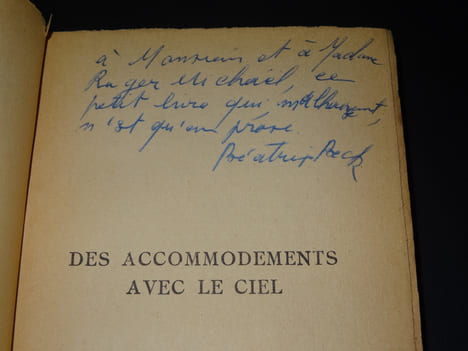 à Monsieur et à Madame
Roger Michaël, ce
petit livre qui, malheureusement,
n'est qu'en prose.
Béatrix Beck
DES ACCOMMODEMENTS
AVEC LE CIEL